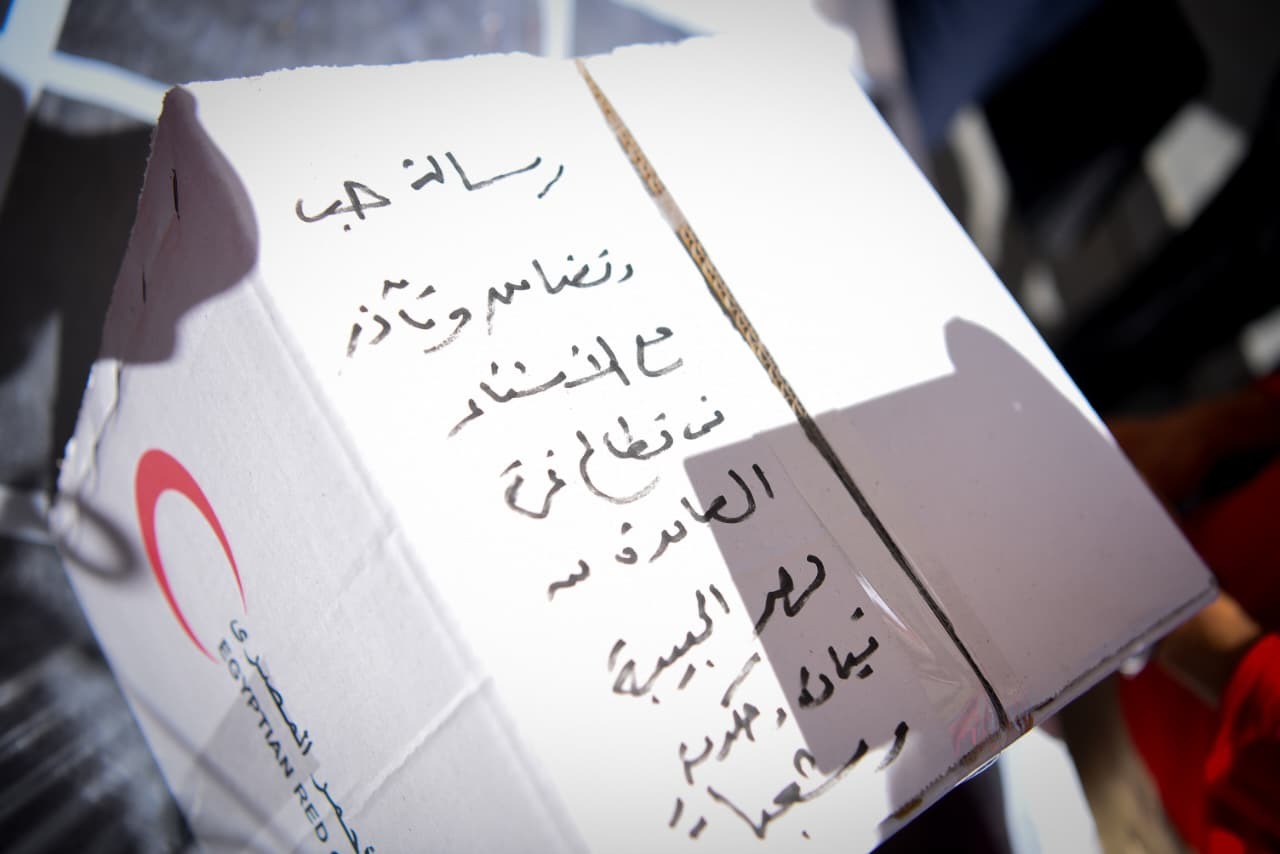 رسالة حب
وتضامن وتآزر
مع الأشقاء
فى قطاع غزة
الصامدة من
مصر الحبيبة
قيادة وحكومة
وشعباً
الهلال الأحمر المصرى
EGYPTIAN RED